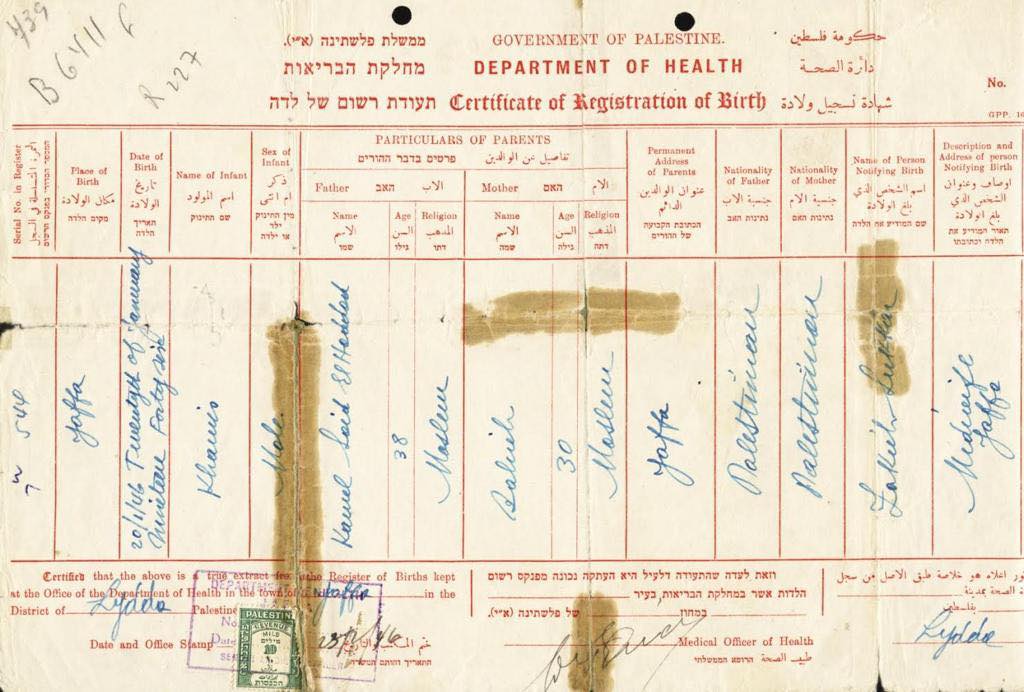 439
B 6411 6
R 227
ממשלת פלשתינה (א״י).
GOVERNMENT OF PALESTINE.
حكومة فلسطين
מחלקת הבריאות
DEPARTMENT OF HEALTH
دائرة الصحة
No.
תעודת רשום של לדה
Certificate of Registration of Birth
شهادة تسجيل ولادة
GPP.
Serial No. in Register
Place of Birth
مكان الولادة
מקום הלדה
Date of Birth
تاريخ الولادة
תאריך הלדה
Name of Infant
اسم المولود
שם התינוק
Sex of Infant
ذكر ام انثى
מין התינוק ילד או ילדה
PARTICULARS OF PARENTS
פרטים בדבר ההורים
تفاصيل عن الوالدين
Father האב الاب
Mother האם الام
Name الاسم שמו
Age السن גילו
Religion المذهب דתו
Name الاسم שמה
Age السن גילה
Religion المذهب דתה
Permanent Address of Parents
عنوان الوالدين الدائم
הכתובת הקבועה של ההורים
Nationality of Father
جنسية الاب
נתינות האב
Nationality of Mother
جنسية الام
נתינות האם
Name of Person Notifying Birth
اسم الشخص الذي بلغ الولادة
שם המודיע את הלדה
Description and Address of person Notifying Birth
اوصاف وعنوان الشخص الذي بلغ الولادة
תאור המודיע את הלדה וכתובתו
544
Jaffa
20/1/46 Twentyth of January Nineteen Forty six
Khamis
Male
Kamel Said El Haddad
38
Moslem
Sabieh
30
Moslem
Jaffa
Palestinian
Palestinian
Zakieh
Midwife Jaffa
Certified that the above is a true extract from the Register of Births kept
at the Office of the Department of Health in the town of Jaffa in the
District of Lydda Palestine
Date and Office Stamp
וזאת לעדה שהתעודה דלעיל היא העתקה נכונה מפנקס רשום
הלדות אשר במחלקת הבריאות, בעיר
במחוז של פלשתינה (א״י).
Medical Officer of Health
طبيب الصحة הרופא הממשלתי
اعلاه هو خلاصة طبق الاصل من سجل
الصحة بمدينة
بفلسطين
Lydda
התאריך וחותם המשרד
PALESTINE
REVENUE
MILS
10
הכנסות